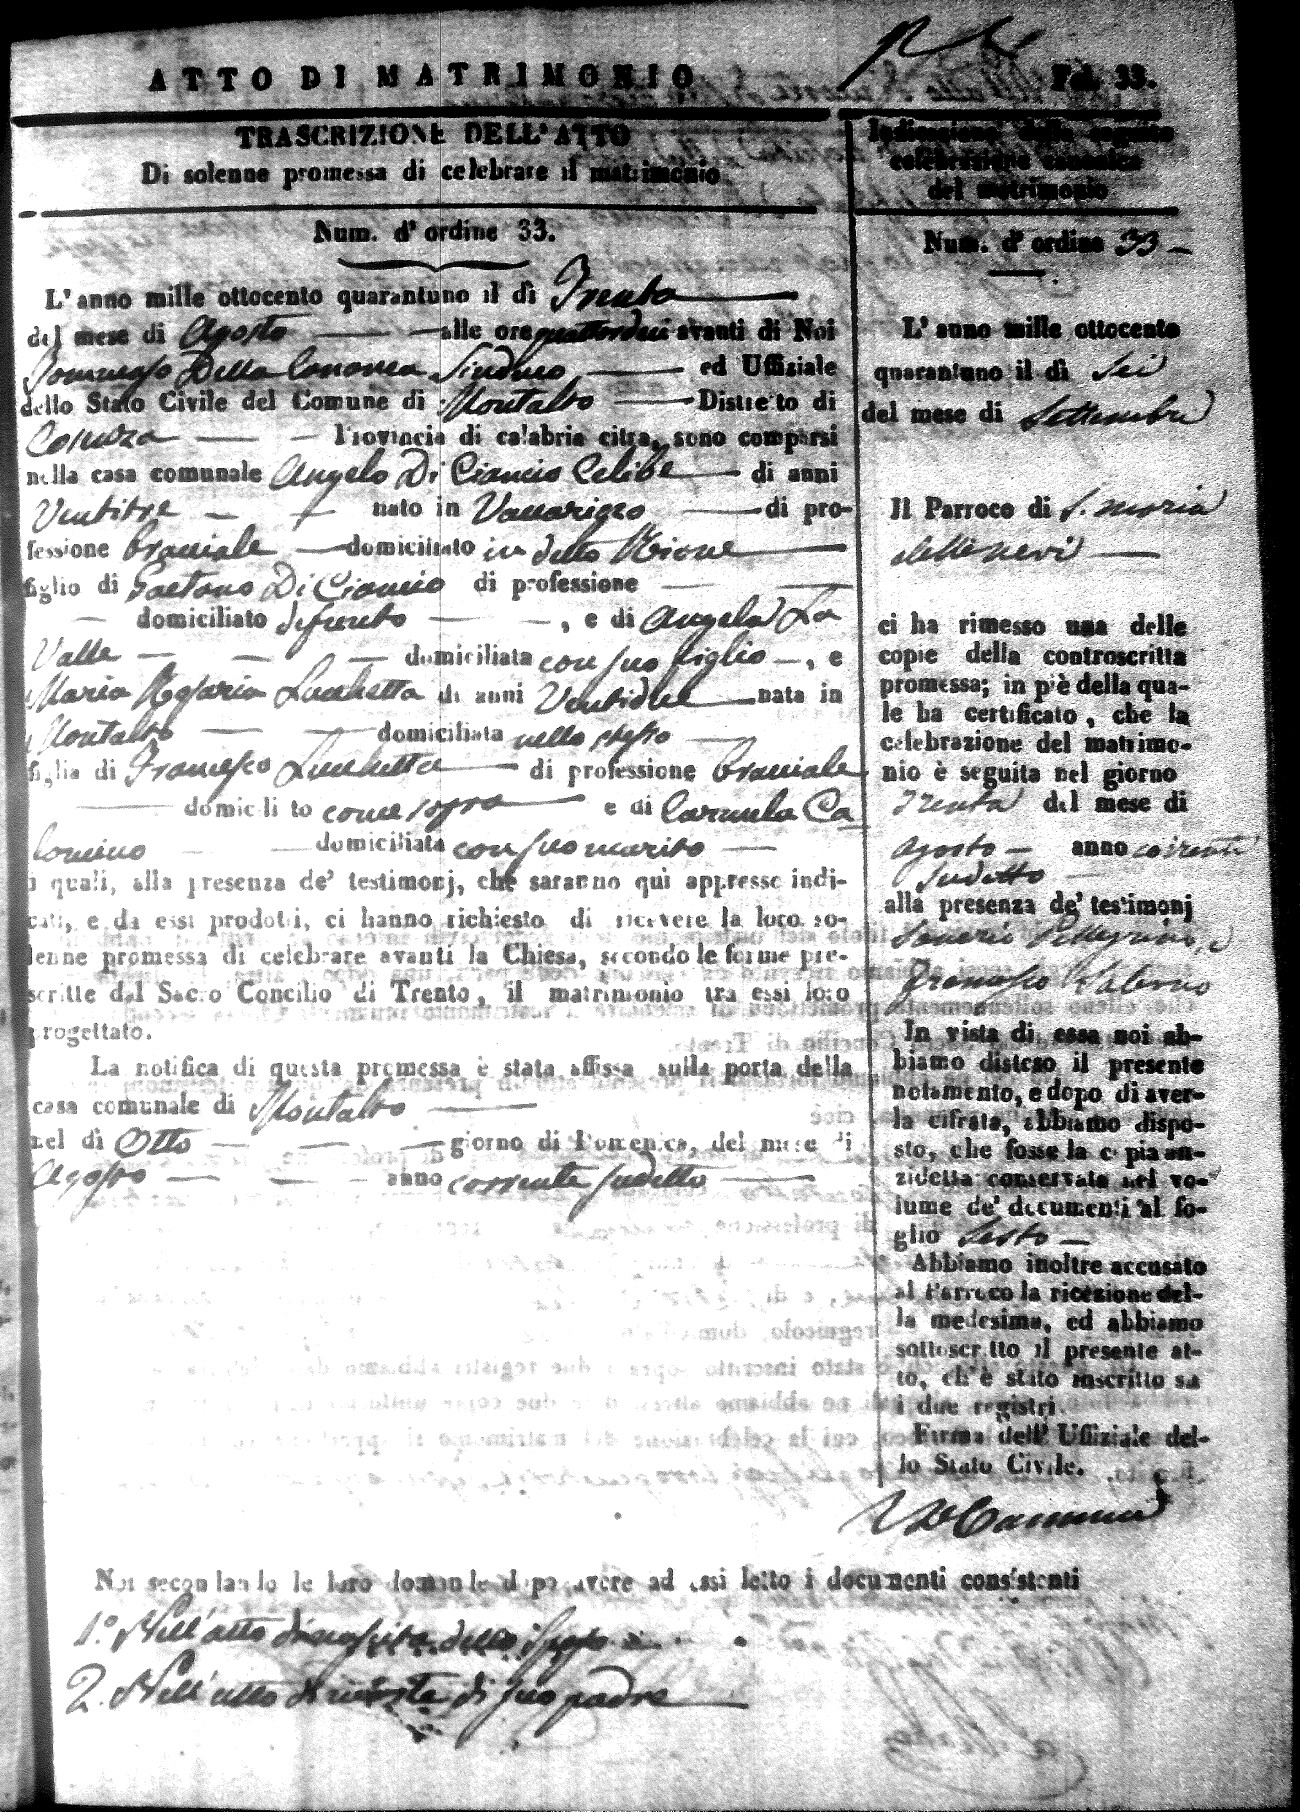 ATTO DI MATRIMONIO
Fol. 33.
TRASCRIZIONE DELL'ATTO
Di solenne promessa di celebrare il matrimonio
Num. d'ordine 33.
L'anno mille ottocento quarantuno il dì Trenta
del mese di Agosto alle ore quattordici avanti di Noi
Tommaso Della Cananea Sindaco ed Uffiziale
dello Stato Civile del Comune di Montalto Distretto di
Cosenza Provincia di calabria citra, sono comparsi
nella casa comunale Angelo Di Ciancio Celibe di anni
Ventitre nato in Vaccarizzo di pro-
fessione bracciale domiciliato in detto Rione
figlio di Gaetano Di Ciancio di professione
domiciliato defunto , e di Angela La
Valle domiciliata con suo figlio , e
Maria Rosaria Lucchetta di anni Ventidue nata in
Montalto domiciliata nello stesso
figlia di Francesco Lucchetta di professione bracciale
domicilito come sopra e di Carmela Ca
lomino domiciliata con suo marito
i quali, alla presenza de' testimonj, che saranno quì appresso indi-
cati, e da essi prodotti, ci hanno richiesto di ricevere la loro so-
lenne promessa di celebrare avanti la Chiesa, secondo le forme pre-
scritte dal Sacro Concilio di Trento, il matrimonio tra essi loro
progettato.
La notifica di questa promessa è stata affissa sulla porta della
casa comunale di Montalto
nel dì Otto giorno di Domenica, del mese di
Agosto anno corrente sudetto
Indicazione della seguita
celebrazione canonica
del matrimonio
Num. d'ordine 33
L'anno mille ottocento
quarantuno il dì Sei
del mese di Settembre
Il Parroco di S. Maria
della neve
ci ha rimesso una delle
copie della controscritta
promessa; in piè della qua-
le ha certificato, che la
celebrazione del matrimo-
nio è seguita nel giorno
Trenta del mese di
Agosto anno corrente
sudetto
alla presenza de' testimonj
Saverio Pellegrino, e
Francesco Palermo
In vista di essa noi ab-
biamo disteso il presente
notamento, e dopo di aver-
la cifrata, abbiamo dispo-
sto, che fosse la copia an-
zidetta conservata nel vo-
lume de' documenti al fo-
glio Sesto
Abbiamo inoltre accusato
al Parroco la ricezione del-
la medesima, ed abbiamo
sottoscritto il presente at-
to, ch'è stato inscritto su
i due registri.
Firma dell' Uffiziale del-
lo Stato Civile.
Noi secondando le loro domande dopo avere ad essi letto i documenti consistenti
1.° Nell'atto di nascita dello sposo
2. Nell'atto di morte di suo padre